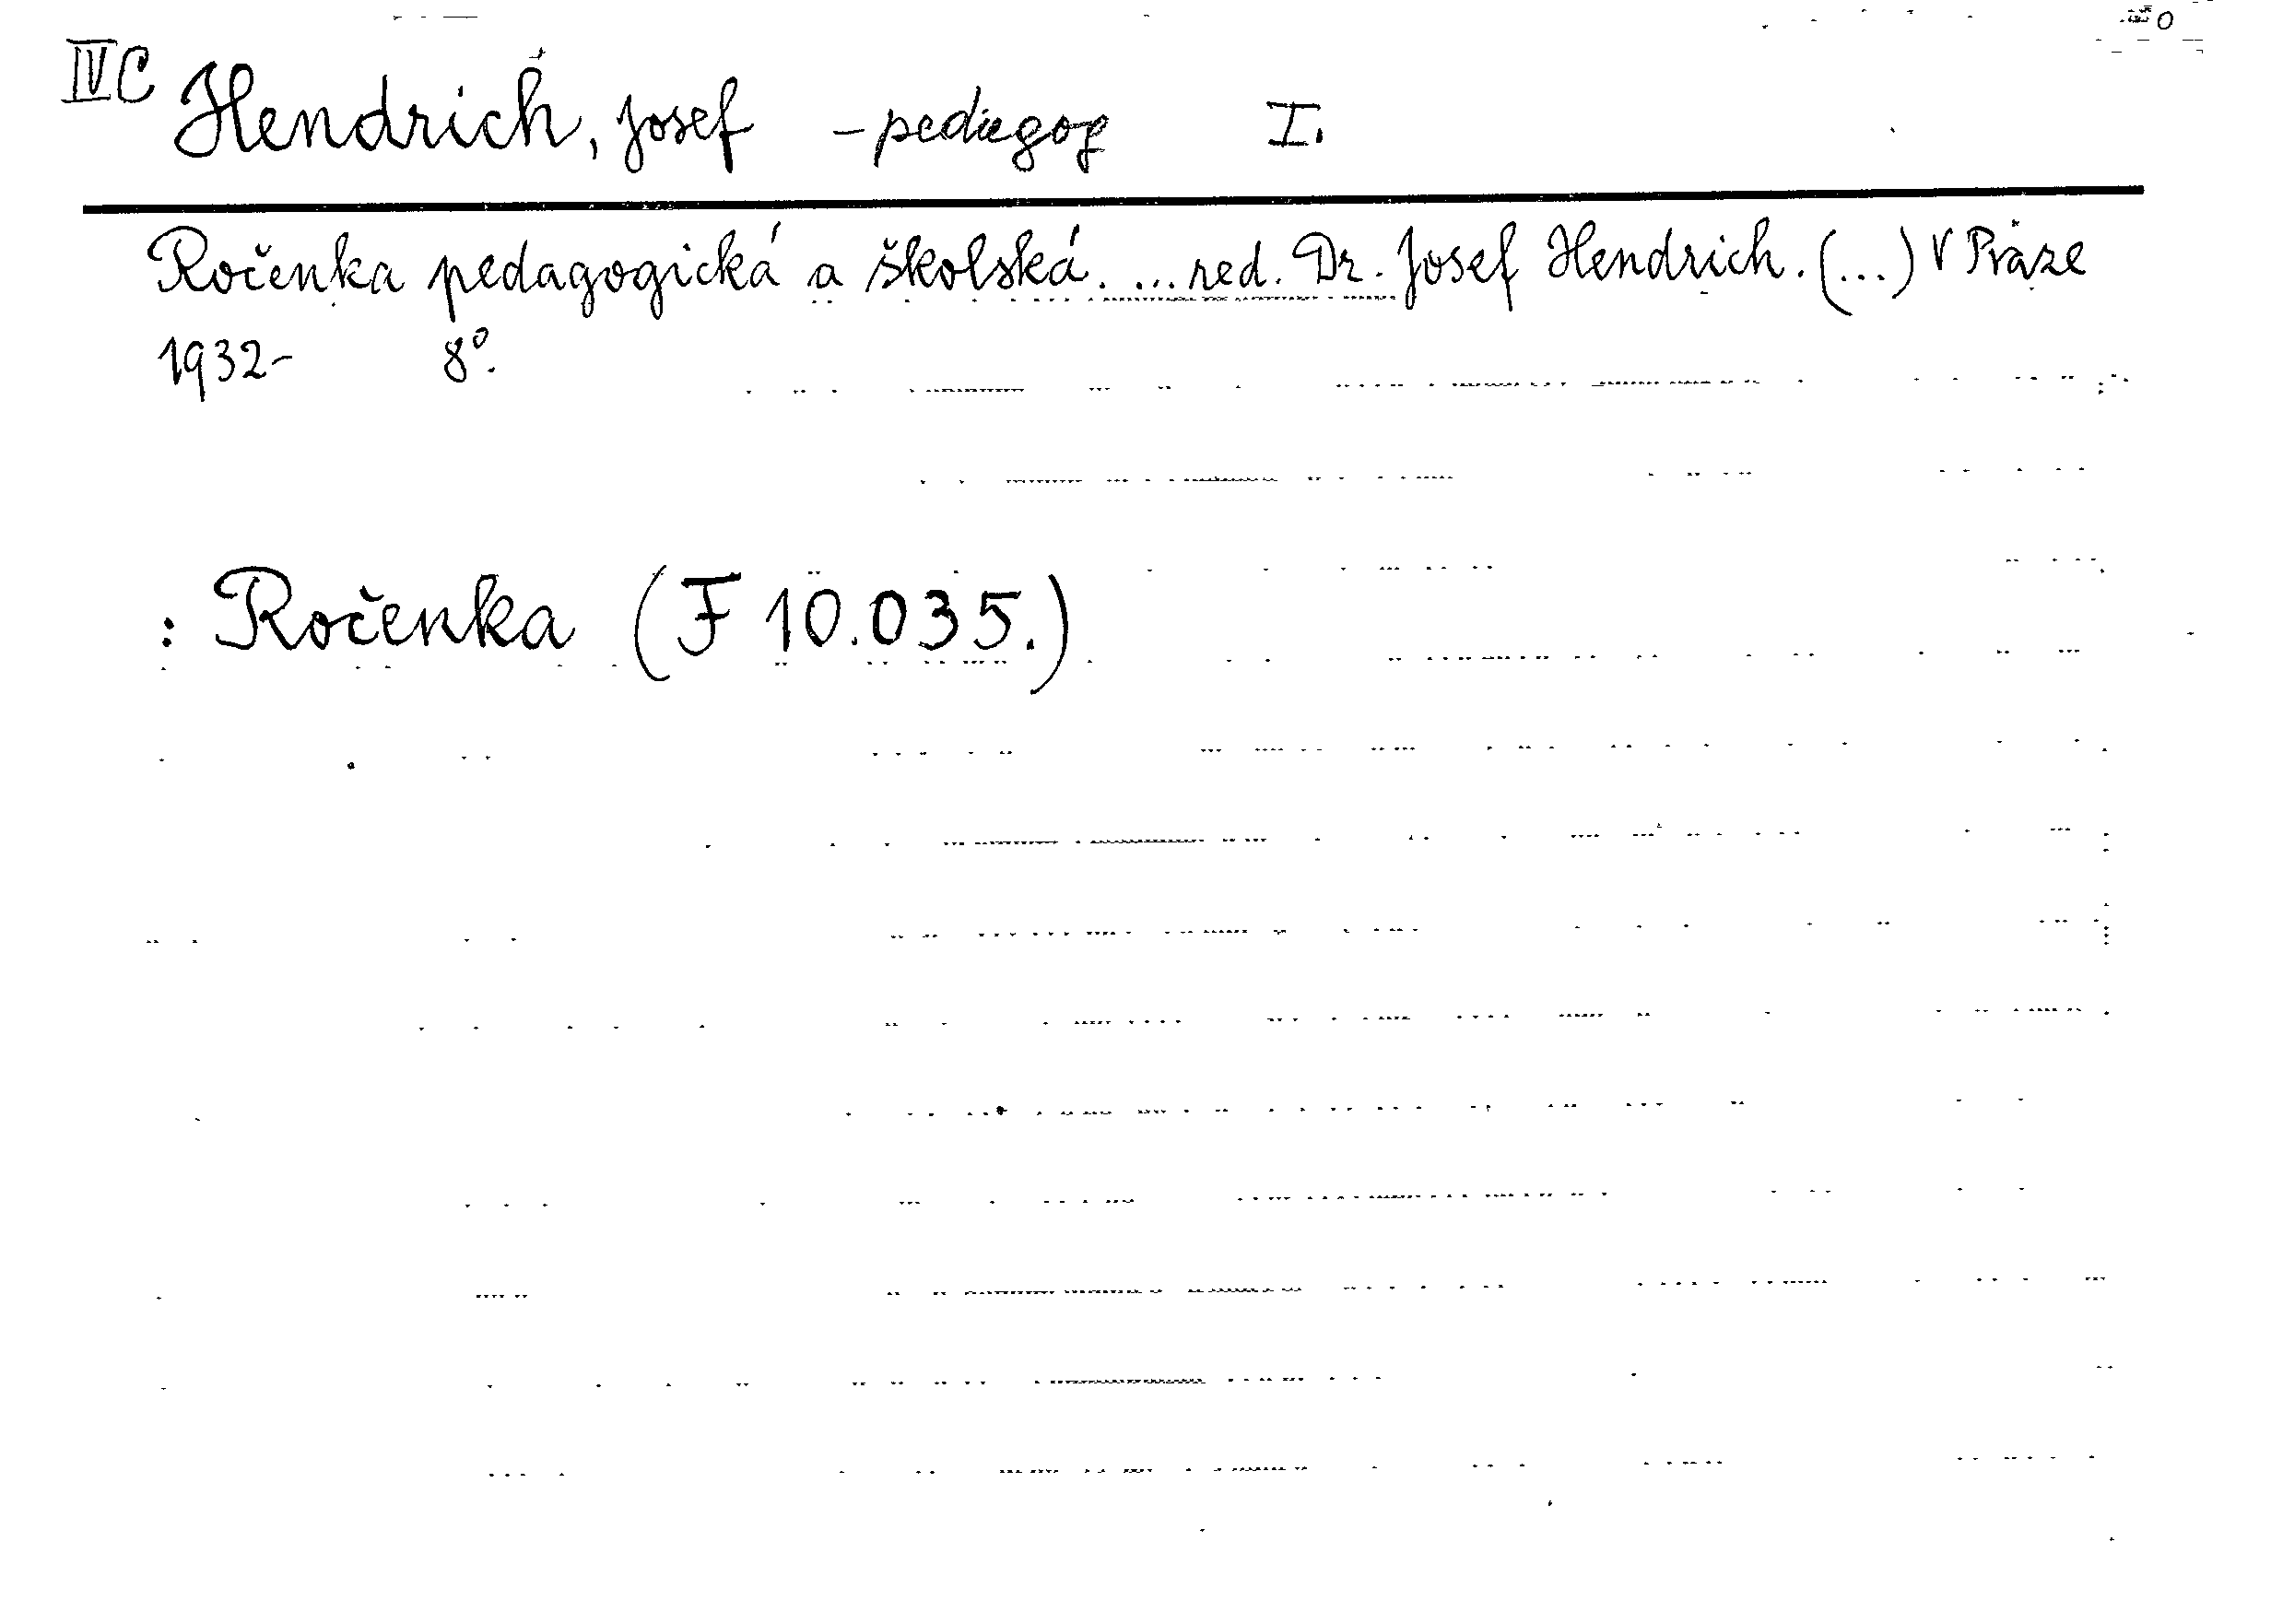 IVC Hendrich, Josef - pedagog I.
Ročenka pedagogická a školská. ... red. Dr. Josef Hendrich. (...) V Praze
1932- 8°.
: Ročenka (F 10.035.)